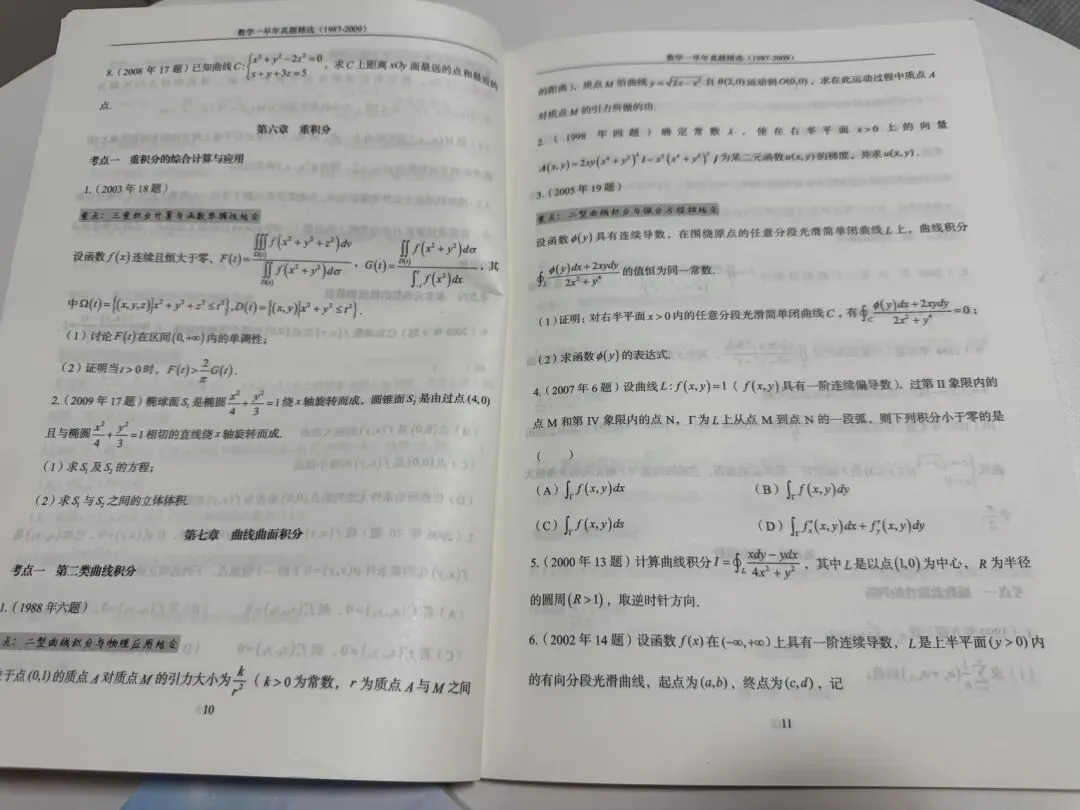 数学一早年真题精选(1987-2009)
8.(2008 年 17 题)已知曲线 C:{x²+y²-2z²=0, x+y+3z=5, 求 C 上距离 xOy 面最远的点和最近的
点.
第六章 重积分
考点一 重积分的综合计算与应用
1.(2003 年 18 题)
重点:三重积分计算与函数单调性结合
设函数 f(x) 连续且恒大于零, F(t)=∭_{Ω(t)} f(x²+y²+z²)dv / ∬_{D(t)} f(x²+y²)dσ , G(t)=∬_{D(t)} f(x²+y²)dσ / ∫_{-t}^{t} f(x²)dx , 其
中 Ω(t)={(x,y,z)|x²+y²+z²≤t²}, D(t)={(x,y)|x²+y²≤t²}.
(1)讨论 F(t) 在区间 (0,+∞) 内的单调性;
(2)证明当 t>0 时, F(t)>2/π G(t).
2.(2009 年 17 题)椭球面 S₁ 是椭圆 x²/4+y²/3=1 绕 x 轴旋转而成, 圆锥面 S₂ 是由过点 (4,0)
且与椭圆 x²/4+y²/3=1 相切的直线绕 x 轴旋转而成.
(1)求 S₁ 及 S₂ 的方程;
(2)求 S₁ 与 S₂ 之间的立体体积.
第七章 曲线曲面积分
考点一 第二类曲线积分
1.(1988 年六题)
点:二型曲线积分与物理应用结合
于点 (0,1) 的质点 A 对质点 M 的引力大小为 k/r² ( k>0 为常数, r 为质点 A 与 M 之间
10
数学一早年真题精选(1987-2009)
的距离), 质点 M 沿曲线 y=√(2x-x²) 自 B(2,0) 运动到 O(0,0), 求在此运动过程中质点 A
对质点 M 的引力所做的功.
2.(1998 年四题)确定常数 λ, 使在右半平面 x>0 上的向量
A(x,y)=2xy(x⁴+y²)^λ i-x²(x⁴+y²)^λ j 为某二元函数 u(x,y) 的梯度, 并求 u(x,y).
3.(2005 年 19 题)
重点:二型曲线积分与微分方程相结合
设函数 φ(y) 具有连续导数, 在围绕原点的任意分段光滑简单闭曲线 L 上, 曲线积分
∮_L (φ(y)dx+2xydy)/(2x²+y⁴) 的值恒为同一常数.
(1)证明: 对右半平面 x>0 内的任意分段光滑简单闭曲线 C, 有 ∮_C (φ(y)dx+2xydy)/(2x²+y⁴)=0;
(2)求函数 φ(y) 的表达式.
4.(2007 年 6 题)设曲线 L: f(x,y)=1( f(x,y) 具有一阶连续偏导数), 过第 II 象限内的
点 M 和第 IV 象限内的点 N, Γ 为 L 上从点 M 到点 N 的一段弧, 则下列积分小于零的是
( )
(A)∫_Γ f(x,y)dx (B)∫_Γ f(x,y)dy
(C)∫_Γ f(x,y)ds (D)∫_Γ f'ₓ(x,y)dx+f'_y(x,y)dy
5.(2000 年 13 题)计算曲线积分 I=∮_L (xdy-ydx)/(4x²+y²), 其中 L 是以点 (1,0) 为中心, R 为半径
的圆周 (R>1), 取逆时针方向.
6.(2002 年 14 题)设函数 f(x) 在 (-∞,+∞) 上具有一阶连续导数, L 是上半平面 (y>0) 内
的有向分段光滑曲线, 起点为 (a,b), 终点为 (c,d), 记
11